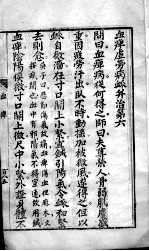 血痺虛勞病脉證并治第六
問曰血痺病從何得之師曰夫尊榮人骨弱肌膚盛
重因疲勞汗出臥不時動搖加被微風遂得之但以
脉自微濇在寸口關上小緊宜鍼引陽氣令脉和緊
去則愈
血痺陰陽俱微寸口關上微尺中小緊外證身體不
血痺